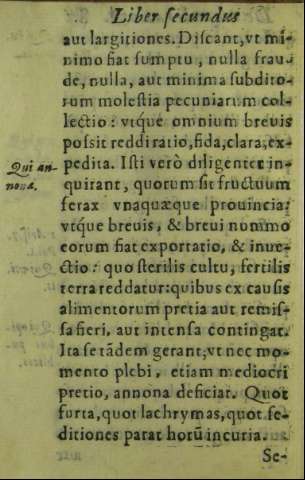 Liber secundus
aut largitiones. Discant, vt mi-
nimo fiat sumptu, nulla frau-
de, nulla, aut minima subdito-
rum molestia pecuniarum col-
lectio: vtque omnium breuis
possit reddi ratio, fida, clara, ex-
Qui an-
nona.
pedita. Isti verò diligenter in-
quirant, quorum sit fructuum
ferax vnaquæque prouincia:
vtque breuis, & breui nummo
eorum fiat exportatio, & inue-
ctio: quo sterilis cultu, fertilis
terra reddatur: quibus ex causis
alimentorum pretia aut remis-
sa fieri, aut intensa contingat.
Ita se tãdem gerant, vt nec mo-
mento plebi, etiam mediocri
pretio, annona deficiat. Quot
furta, quot lachrymas, quot se-
ditiones parat horũ incuria.
Se-